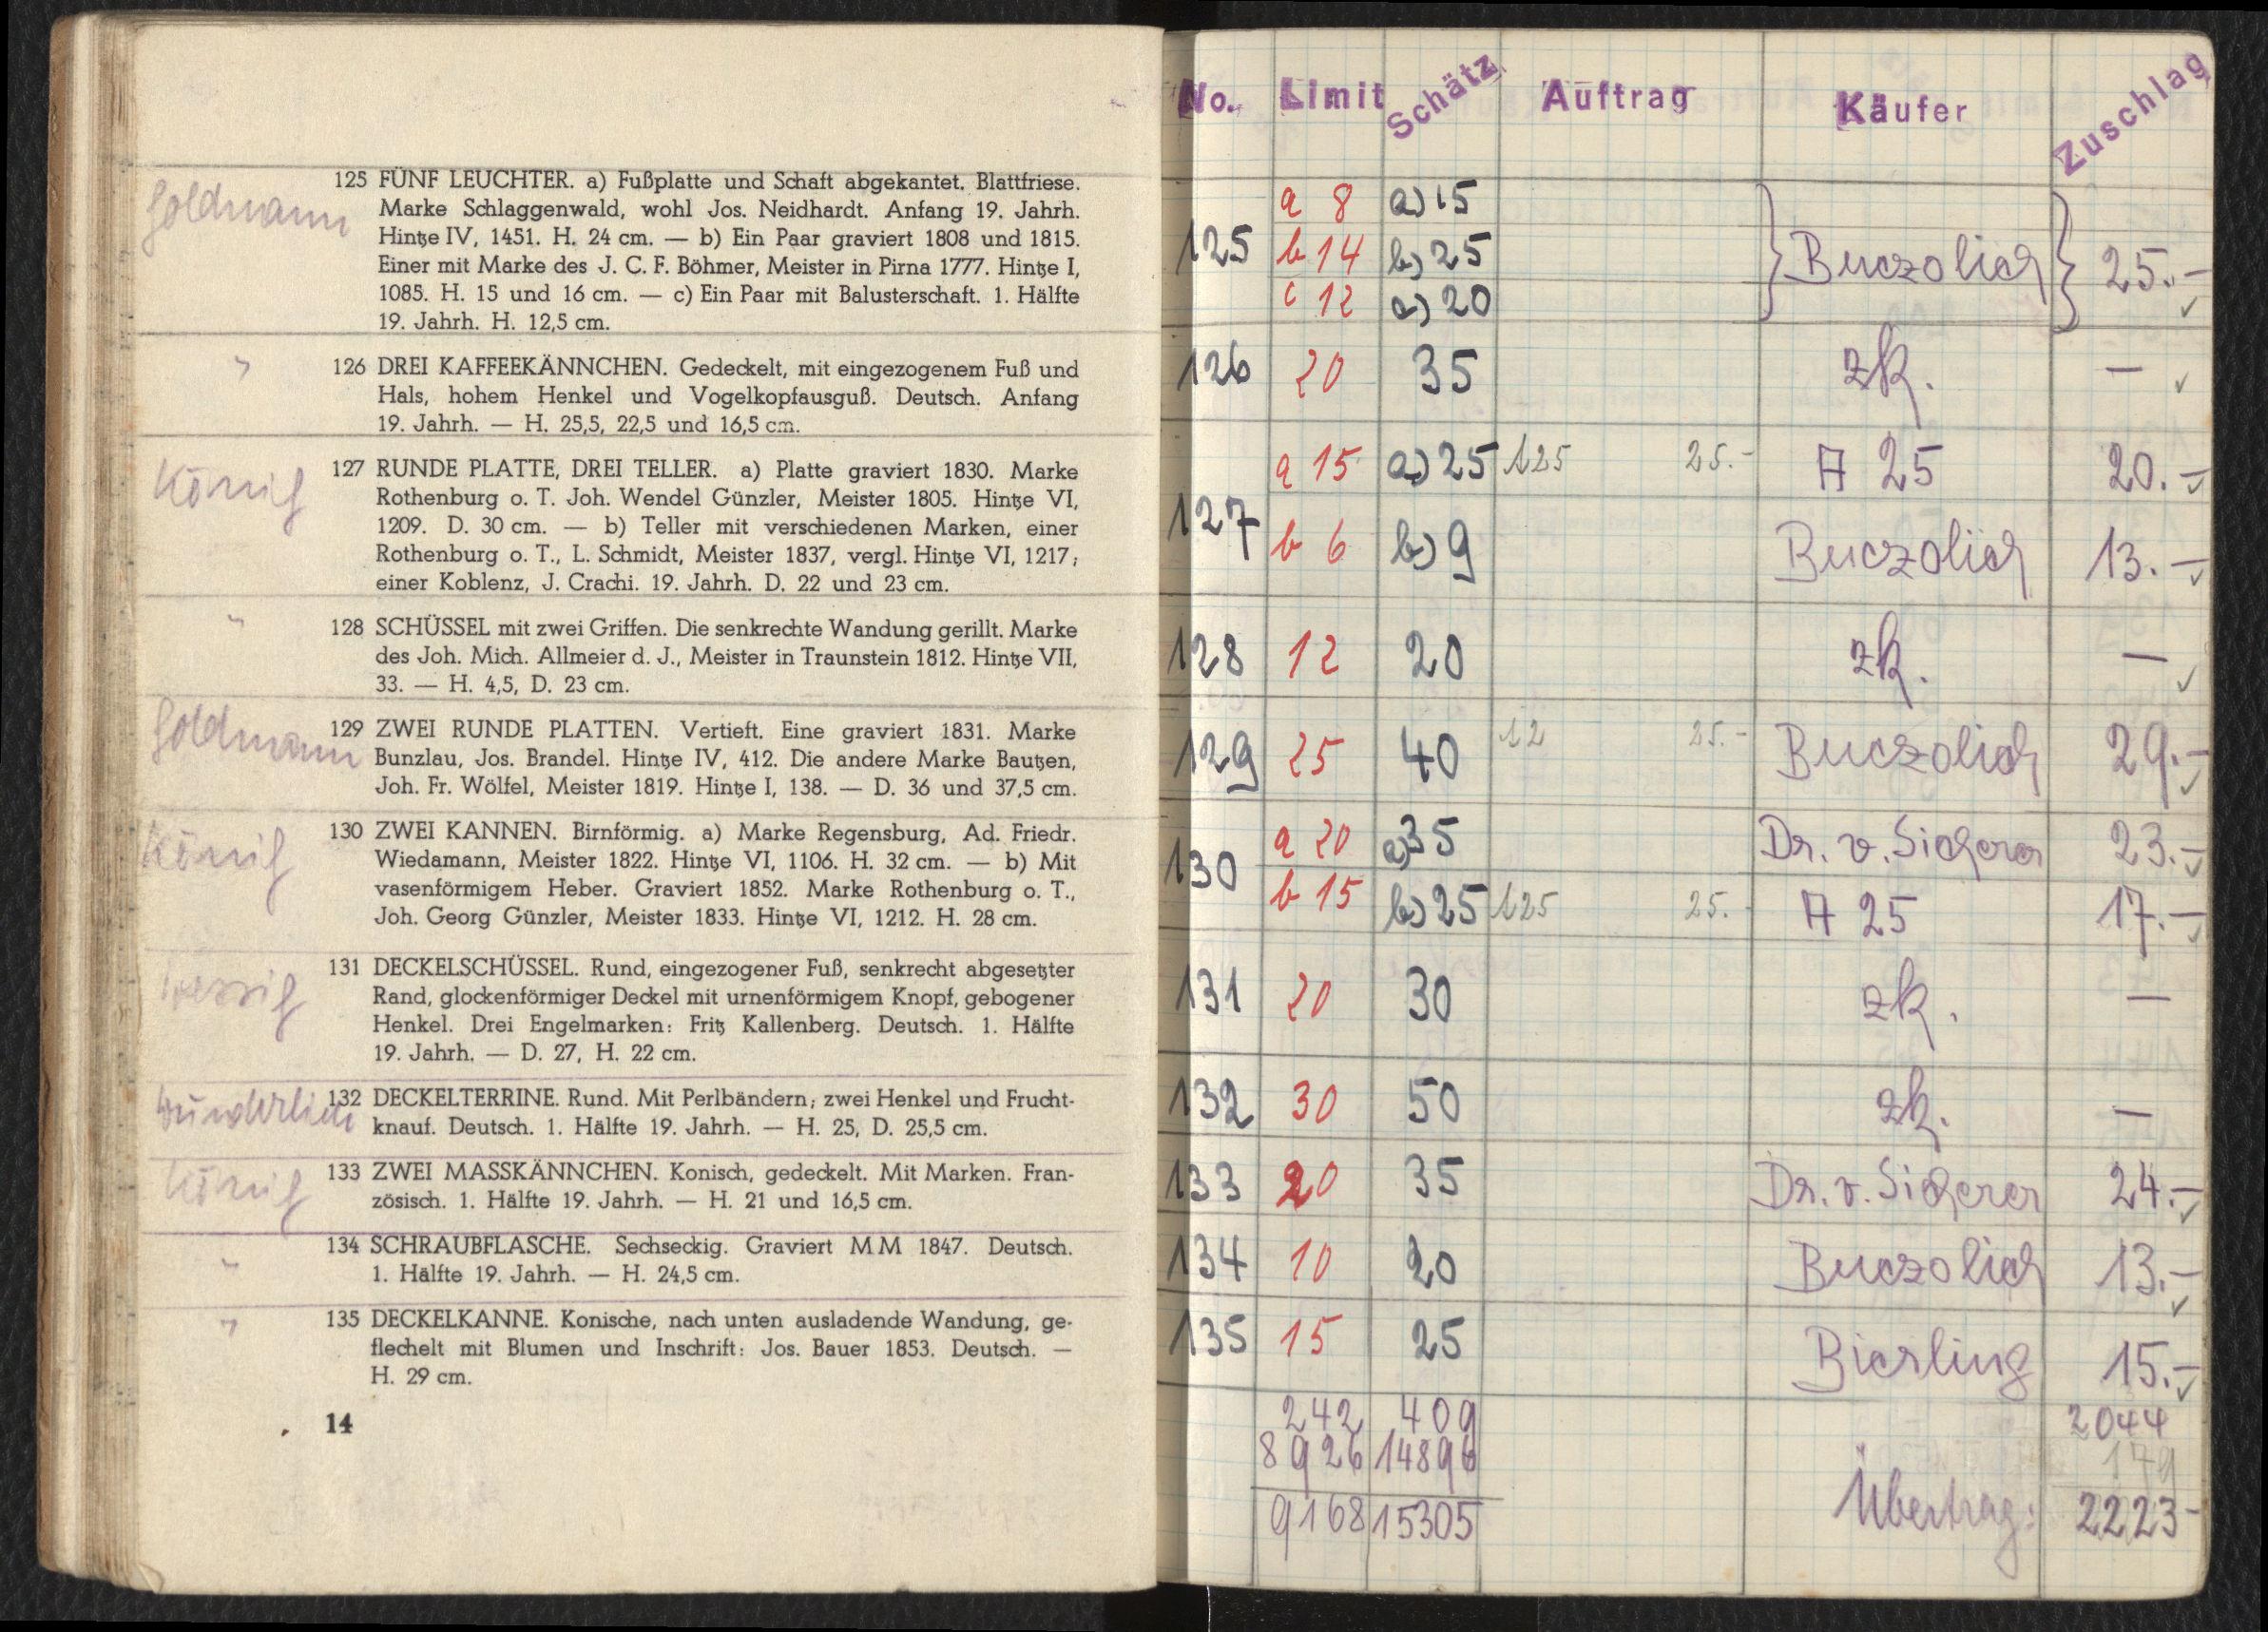 Goldmann
125 FÜNF LEUCHTER. a) Fußplatte und Schaft abgekantet. Blattfriese.
Marke Schlaggenwald, wohl Jos. Neidhardt. Anfang 19. Jahrh.
Hintze IV, 1451. H. 24 cm. — b) Ein Paar graviert 1808 und 1815.
Einer mit Marke des J. C. F. Böhmer, Meister in Pirna 1777. Hintze I,
1085. H. 15 und 16 cm. — c) Ein Paar mit Balusterschaft. 1. Hälfte
19. Jahrh. H. 12,5 cm.
"
126 DREI KAFFEEKÄNNCHEN. Gedeckelt, mit eingezogenem Fuß und
Hals, hohem Henkel und Vogelkopfausguß. Deutsch. Anfang
19. Jahrh. — H. 25,5, 22,5 und 16,5 cm.
König
127 RUNDE PLATTE, DREI TELLER. a) Platte graviert 1830. Marke
Rothenburg o. T. Joh. Wendel Günzler, Meister 1805. Hintze VI,
1209. D. 30 cm. — b) Teller mit verschiedenen Marken, einer
Rothenburg o. T., L. Schmidt, Meister 1837, vergl. Hintze VI, 1217;
einer Koblenz, J. Crachi. 19. Jahrh. D. 22 und 23 cm.
"
128 SCHÜSSEL mit zwei Griffen. Die senkrechte Wandung gerillt. Marke
des Joh. Mich. Allmeier d. J., Meister in Traunstein 1812. Hintze VII,
33. — H. 4,5, D. 23 cm.
Goldmann
129 ZWEI RUNDE PLATTEN. Vertieft. Eine graviert 1831. Marke
Bunzlau, Jos. Brandel. Hintze IV, 412. Die andere Marke Bautzen,
Joh. Fr. Wölfel, Meister 1819. Hintze I, 138. — D. 36 und 37,5 cm.
König
130 ZWEI KANNEN. Birnförmig. a) Marke Regensburg, Ad. Friedr.
Wiedamann, Meister 1822. Hintze VI, 1106. H. 32 cm. — b) Mit
vasenförmigem Heber. Graviert 1852. Marke Rothenburg o. T.,
Joh. Georg Günzler, Meister 1833. Hintze VI, 1212. H. 28 cm.
131 DECKELSCHÜSSEL. Rund, eingezogener Fuß, senkrecht abgesetzter
Rand, glockenförmiger Deckel mit urnenförmigem Knopf, gebogener
Henkel. Drei Engelmarken: Fritz Kallenberg. Deutsch. 1. Hälfte
19. Jahrh. — D. 27, H. 22 cm.
Wunderlich
132 DECKELTERRINE. Rund. Mit Perlbändern; zwei Henkel und Frucht-
knauf. Deutsch. 1. Hälfte 19. Jahrh. — H. 25, D. 25,5 cm.
König
133 ZWEI MASSKÄNNCHEN. Konisch, gedeckelt. Mit Marken. Fran-
zösisch. 1. Hälfte 19. Jahrh. — H. 21 und 16,5 cm.
"
134 SCHRAUBFLASCHE. Sechseckig. Graviert MM 1847. Deutsch.
1. Hälfte 19. Jahrh. — H. 24,5 cm.
"
135 DECKELKANNE. Konische, nach unten ausladende Wandung, ge-
flechelt mit Blumen und Inschrift: Jos. Bauer 1853. Deutsch. —
H. 29 cm.
14
No. Limit Schätz Auftrag Käufer Zuschlag
a 8 a) 15
125 b 14 b) 25 } Buczolich } 25.—
c 12 c) 20
126 20 35 zk. —
a 15 a) 25 125 25.— A 25 20.—
127
b 6 b) 9 Buczolich 13.—
128 12 20 zk. —
129 25 40 12 25.— Buczolich 29.—
a 20 a) 35 Dr. v. Sicherer 23.—
130
b 15 b) 25 125 25.- A 25 17.—
131 20 30 zk. —
132 30 50 zk. —
133 20 35 Dr. v. Sicherer 24.—
134 10 20 Buczolich 13.—
135 15 25 Bierling 15.—
242 409 2044
8926 14896 179
9168 15305 Übertrag: 2223-